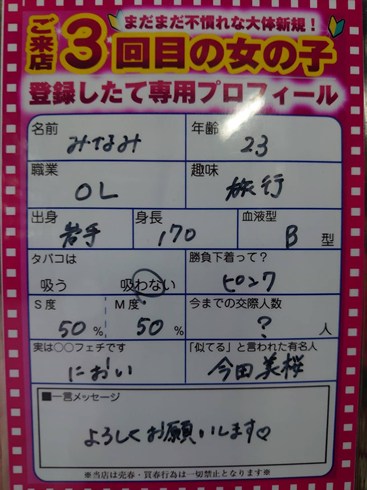 まだまだ不慣れな大体新規！
ご来店3回目の女の子
登録したて専用プロフィール
名前 みなみ 年齢 23
職業 OL 趣味 旅行
出身 岩手 身長 170 血液型 B 型
タバコは 吸う 吸わない 勝負下着って？ ピンク
S度 50% M度 50% 今までの交際人数 ? 人
実は○○フェチです におい 「似てる」と言われた有名人 今田美桜
■一言メッセージ
よろしくお願いします♡
※当店は売春・買春行為は一切禁止となります※